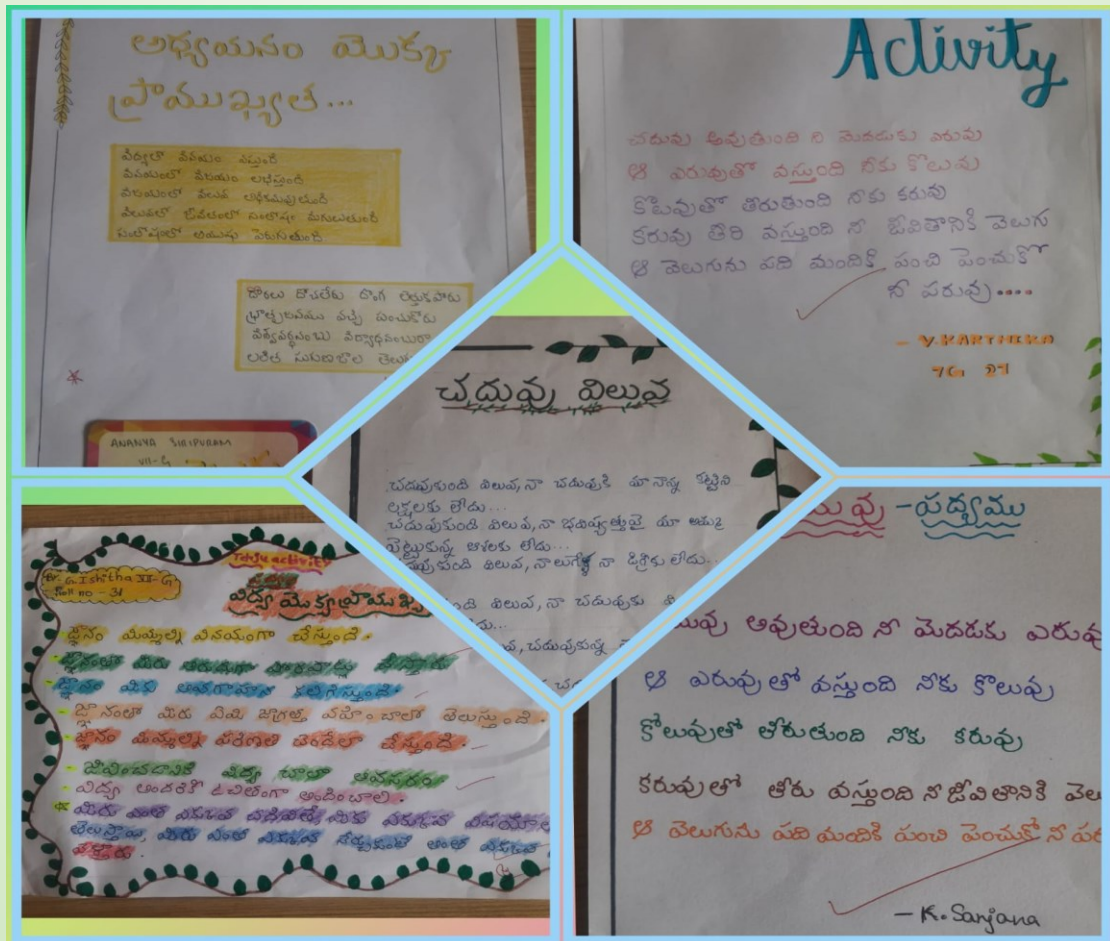 అధ్యయనం మొక్క
ప్రాముఖ్యత...
విద్యలో వినయం వస్తుంది
వినయంలో విజయం లభిస్తుంది
విజయంలో విలువ అధికమవుతుంది
విలువలో జీవితంలో సంతోషం మిగులుతుంది
సంతోషంలో ఆయుషు పెరుగుతుంది
దొరలు దోచలేరు దొంగ లెత్తుకపోరు
భ్రాతృజనము వచ్చి పంచుకోరు
విశ్వవర్ధనంబు విద్యాధనంబురా
లలిత సుగుణజాల
ANANYA SIRIPURAM
VII-G
Activity
చదువు అవుతుంది ని మెదడుకు ఎరువు
ఆ ఎరువుతో వస్తుంది నీకు కొలువు
కొలువుతో తీరుతుంది నీకు కరువు
కరువు తీరి వస్తుంది నీ జీవితానికి వెలుగు
ఆ వెలుగును పది మందికి పంచి పెంచుకో
నీ పరువు....
- V.KARTHIKA
7G 27
చదువు విలువ
చదువుకుంది విలువ, నా చదువుకి మా నాన్న కట్టిన
లక్షలకు లేదు...
చదువుకుంది విలువ, నా భవిష్యత్తుపై మా అమ్మ
పెట్టుకున్న ఆశలకు లేదు...
విలువ, నా డిగ్రీకు లేదు...
విలువ, నా చదువుకు
చదువుకున్న
Telugu activity
G. Ishitha VII-G
Roll no - 31
విద్య మొక్క ప్రాముఖ్య
జ్ఞానం మిమ్మల్ని వినయంగా చేస్తుంది.
జ్ఞానం మీకు అవగాహన కలిగిస్తుంది.
జ్ఞానంతో మీరు ఏమి జాగ్రత్త వహించాలో తెలుస్తుంది.
జ్ఞానం మిమ్మల్ని పరిణతి చెందేలా చేస్తుంది.
జీవించడానికి విద్య చాలా అవసరం
విద్య అందరికీ ఉచితంగా అందించాలి.
మీరు ఎంత ఎక్కువ చదివితే మీకు ఎక్కువ
-పద్యము
అవుతుంది నీ మెదడుకు ఎరువు
ఆ ఎరువుతో వస్తుంది నీకు కొలువు
కోలువుతో తీరుతుంది నీకు కరువు
కరువుతో తీరు వస్తుంది నీ జీవితానికి వెలు
ఆ వెలుగును పది మందికి పంచి పెంచుకో నీ పర
- K. Sanjana